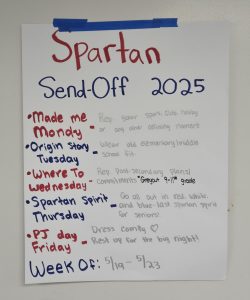 Spartan
Send-Off 2025
• Made me Monday - Rep. your sport, club, hobby
or any other defining moment
• Origin Story Tuesday - Wear old elementary/middle
school fit.
• Where To Wednesday - Rep. Post-secondary plans/
commitments *Greyout 9-11th grade
• Spartan Spirit Thursday - Go all out in red, white,
and blue - last spartan spirit
for seniors!
• PJ day Friday - Dress comfy ♡
Rest up for the big night!
Week Of: 5/19 - 5/23